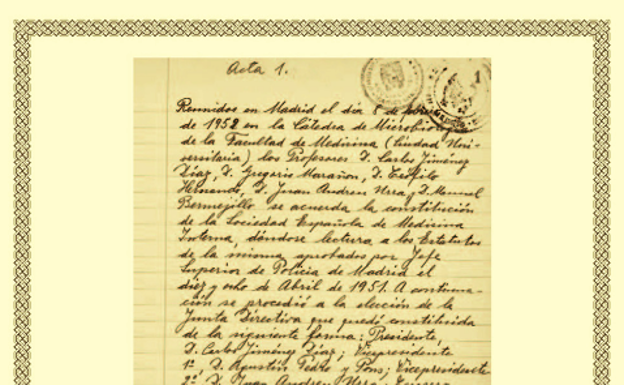 Acta 1.
1
Reunidos en Madrid el día 8 de
de 1952 en la Cátedra de Microbiología
de la Facultad de Medicina (Ciudad Uni-
versitaria) los Profesores D. Carlos Jiménez
Díaz, D. Gregorio Marañon, D. Teófilo
Hernando, D. Juan Andreu Urra y D. Manuel
Bermejillo se acuerda la constitución
de la Sociedad Española de Medicina
Interna, dándose lectura a los Estatutos
de la misma aprobados por Jefe
Superior de Policia de Madrid el
diez y ocho de Abril de 1951. A continua-
ción se procedió a la elección de la
Junta Directiva que quedó constituida
de la siguiente forma: Presidente,
D. Carlos Jiménez Díaz; Vicepresidente
1º, D. Agustín Pedro y Pons; Vicepresidente
2º D. Juan Andreu Urra;